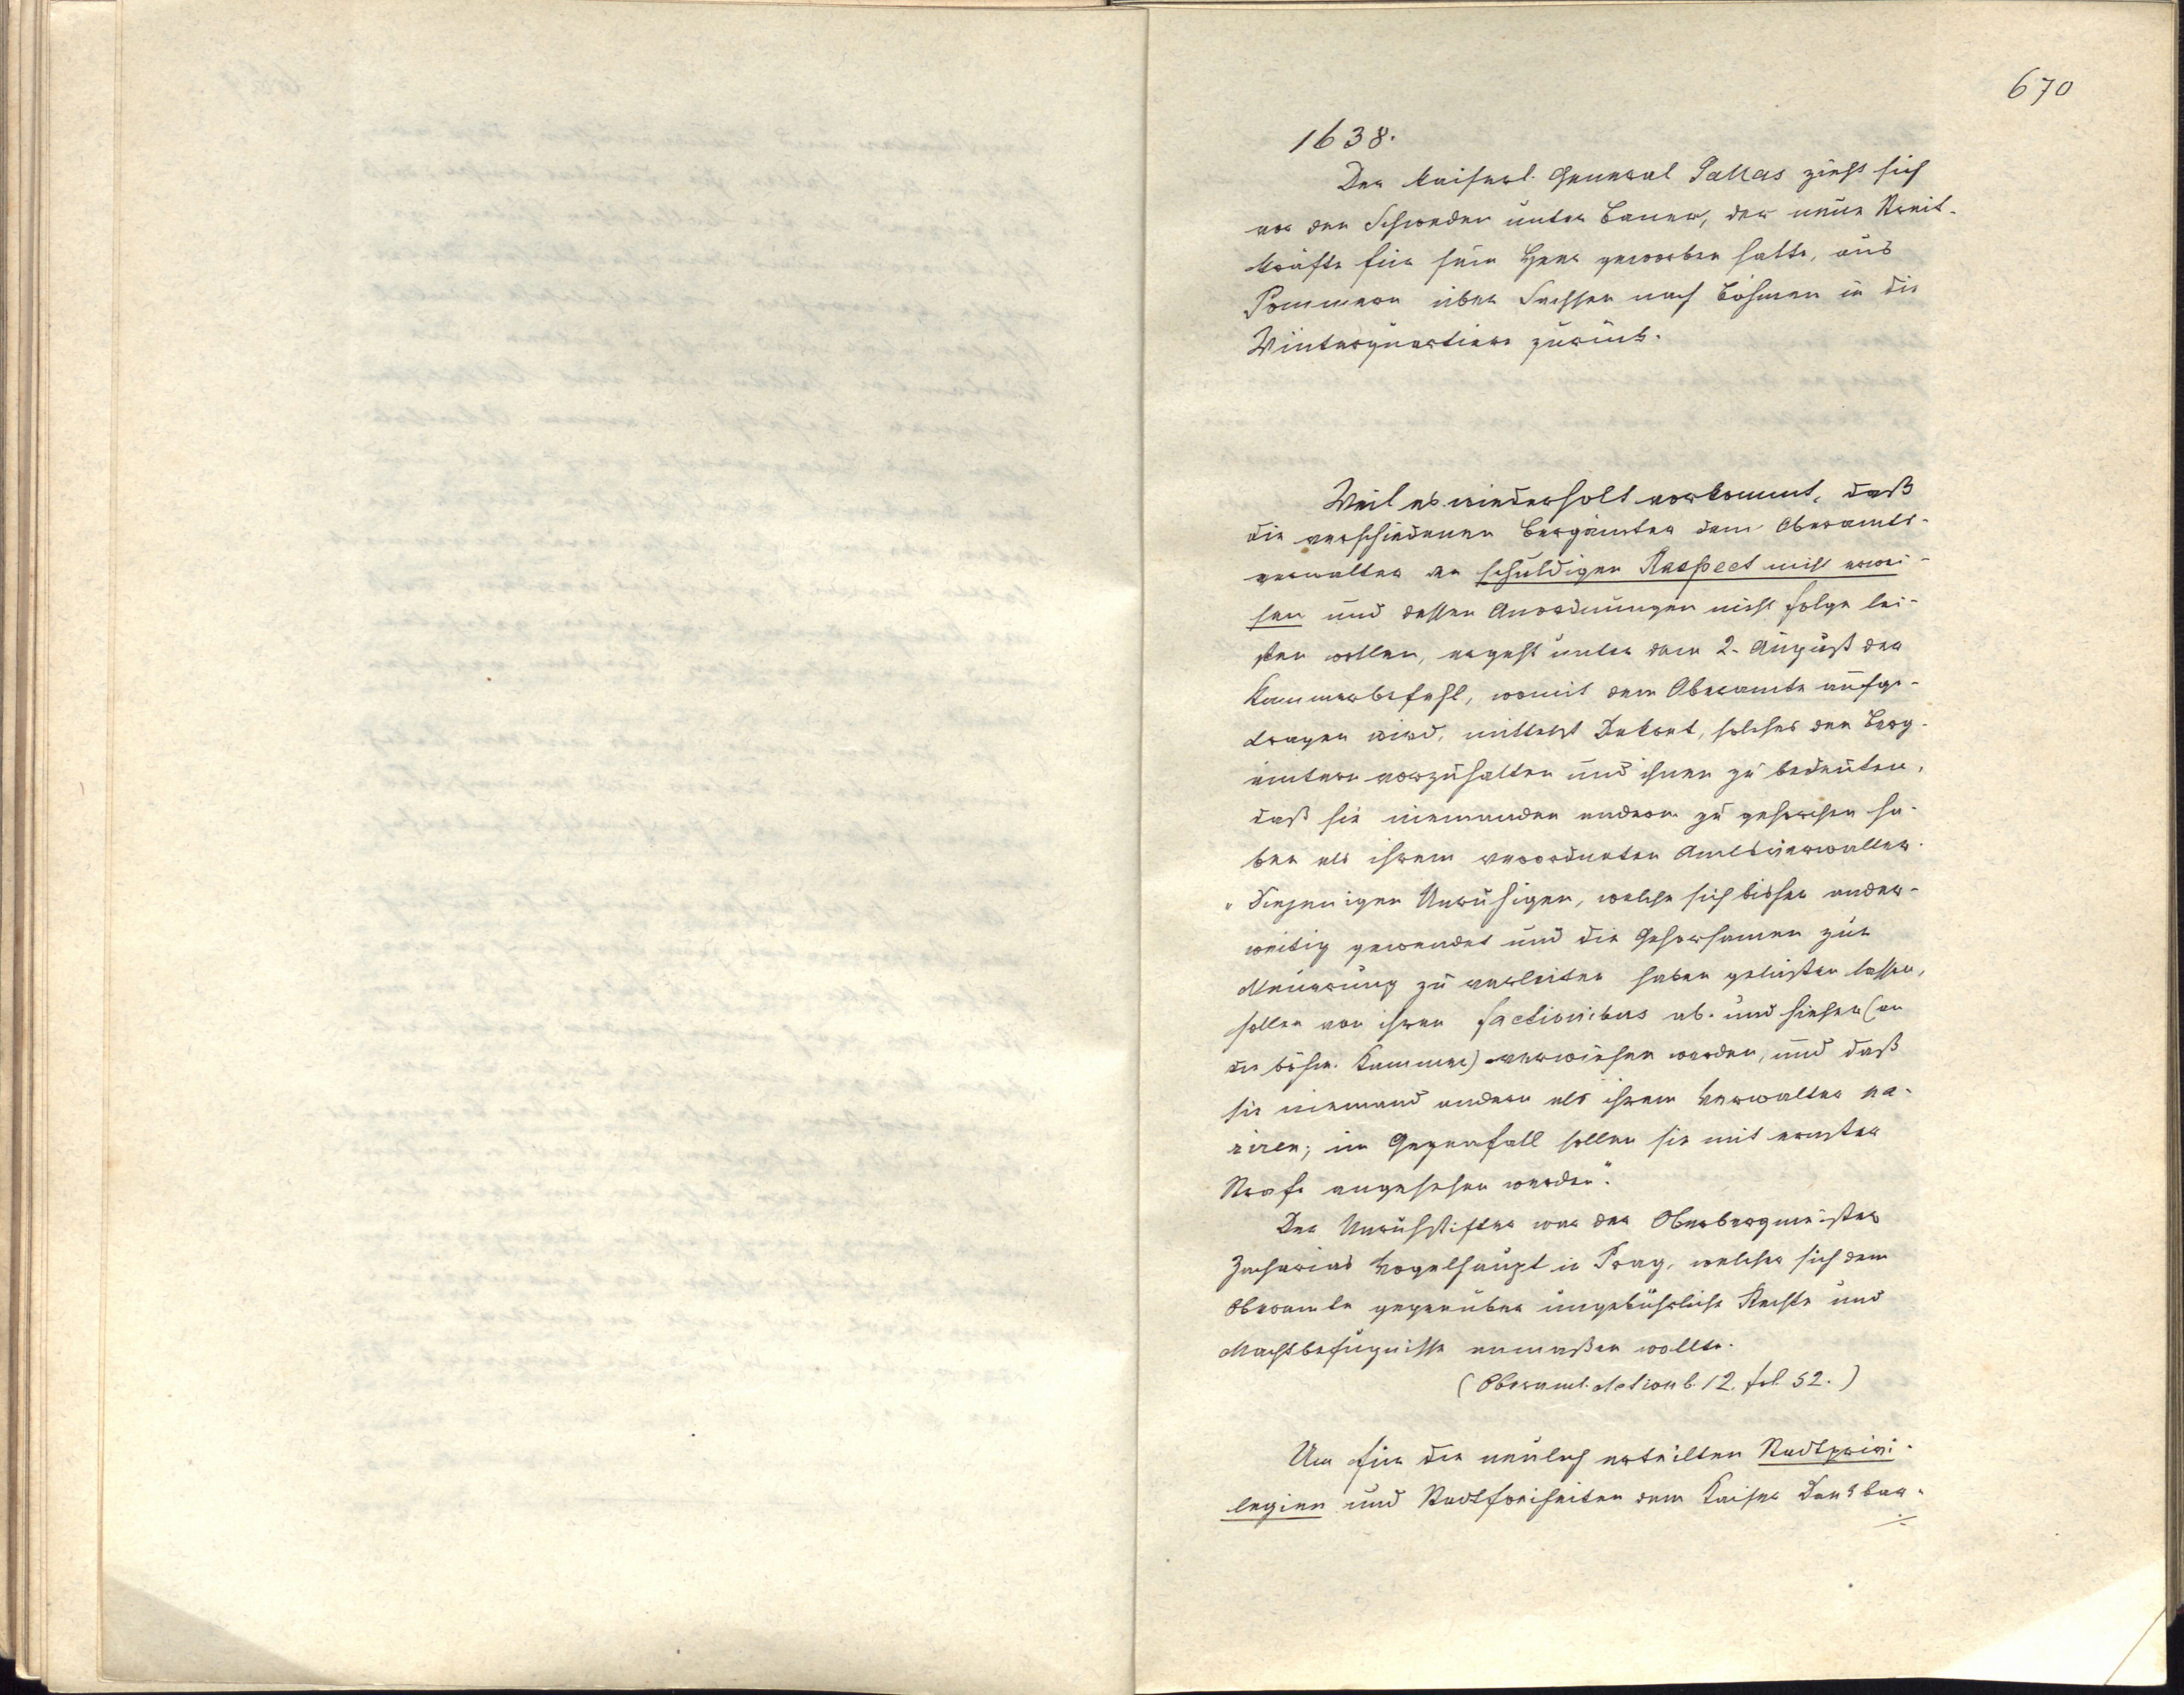 670
1638.
Der kaiserl. General Gallas zieht sich
vor den Schweden unter Baner, der neue Streit-
kräfte für sein Heer geworben hatte, aus
Pommern über Sachsen nach Böhmen in die
Winterquartiere zurück.
Weil es wiederholt vorkommt, daß
die verschiedenen Bergämter dem Oberamts-
verwalter den schuldigen Respect nicht erwei-
sen und dessen Anordnungen nicht folge lei-
sten wollen, ergeht unter dem 2. August der
Kammerbefehl, womit dem Oberamte aufge-
tragen wird, mittelst Dekret, solches den Berg-
ämtern vorzuhalten und ihnen zu bedeuten,
daß sie niemanden andern zu gehorchen ha-
ben als ihrem verordneten Amtsverwalter.
"Diejenigen Unruhigen, welche sich bisher ander-
weitig gewendet und die Gehorsamen zur
Neuerung zu verleiten haben gelüsten lassen,
sollen von ihren factionibus ab- und hieher (an
die böhm. Kammer) verwiesen werden, und daß
sie niemand andern als ihrem Verwalter pa-
riren; im Gegenfall sollen sie mit ernster
Strafe angesehen werden".
Der Unruhstifter war der Oberbergmeister
Zacharias Vogelhaupt in Prag, welcher sich dem
Oberamte gegenüber ungebührliche Rechte und
Machtbefugnisse anmaßen wollte.
(Oberamt. Actionb. 12. fol. 52.)
Um für die neulich erteilten Stadtprivi-
legien und Stadtfreiheiten dem Kaiser Dankbar-